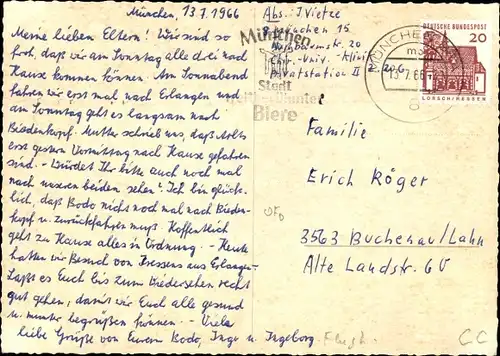 München, 13.7.1966
Meine lieben Eltern! Wir sind so
froh, daß wir am Sonntag alle drei nach
Hause kommen können. Am Sonnabend
fahren wir erst mal nach Erlangen und
am Sonntag geht es langsam nach
Biedenkopf. Mutter schrieb uns, daß
erst gestern Vormittag nach Hause gefahren
sind. - Würdet Ihr bitte auch noch mal
nach unseren beiden sehen? Ich bin glück-
lich, daß Bodo nicht noch mal nach Bieden-
kopf u. zurückfahren muß. Hoffentlich
geht zu Hause alles in Ordnung. - Heute
hatten wir Besuch von aus Erlangen
Laßt es Euch bis zum Wiedersehen recht
gut gehen, damit wir Euch alle gesund
u. munter begrüßen können. - Viele
liebe Grüße von Eurem Bodo, Inge u. Ingeborg.
Abs. J. Vietze
8 München 15
20
Chir. Univ. - Klinik
Privatstation II
München
Stadt
Biere
MÜNCHEN
13.7.66
DEUTSCHE BUNDESPOST
20
LORSCH/HESSEN
Familie
Erich Röger
3563 Buchenau/Lahn
Alte Landstr. 60
CC